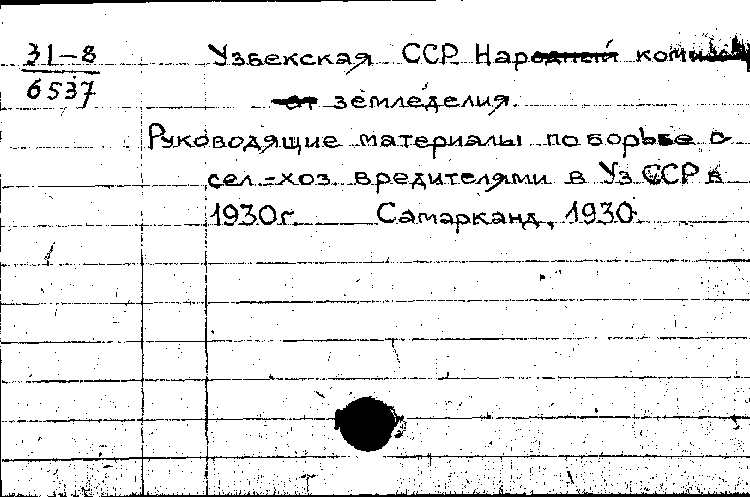 31-8
6537
Узбекская ССР. Народный комис
от земледелия.
Руководящие материалы по борьбе с
сел.-хоз. вредителями в УзССР в
1930г. Самарканд, 1930.